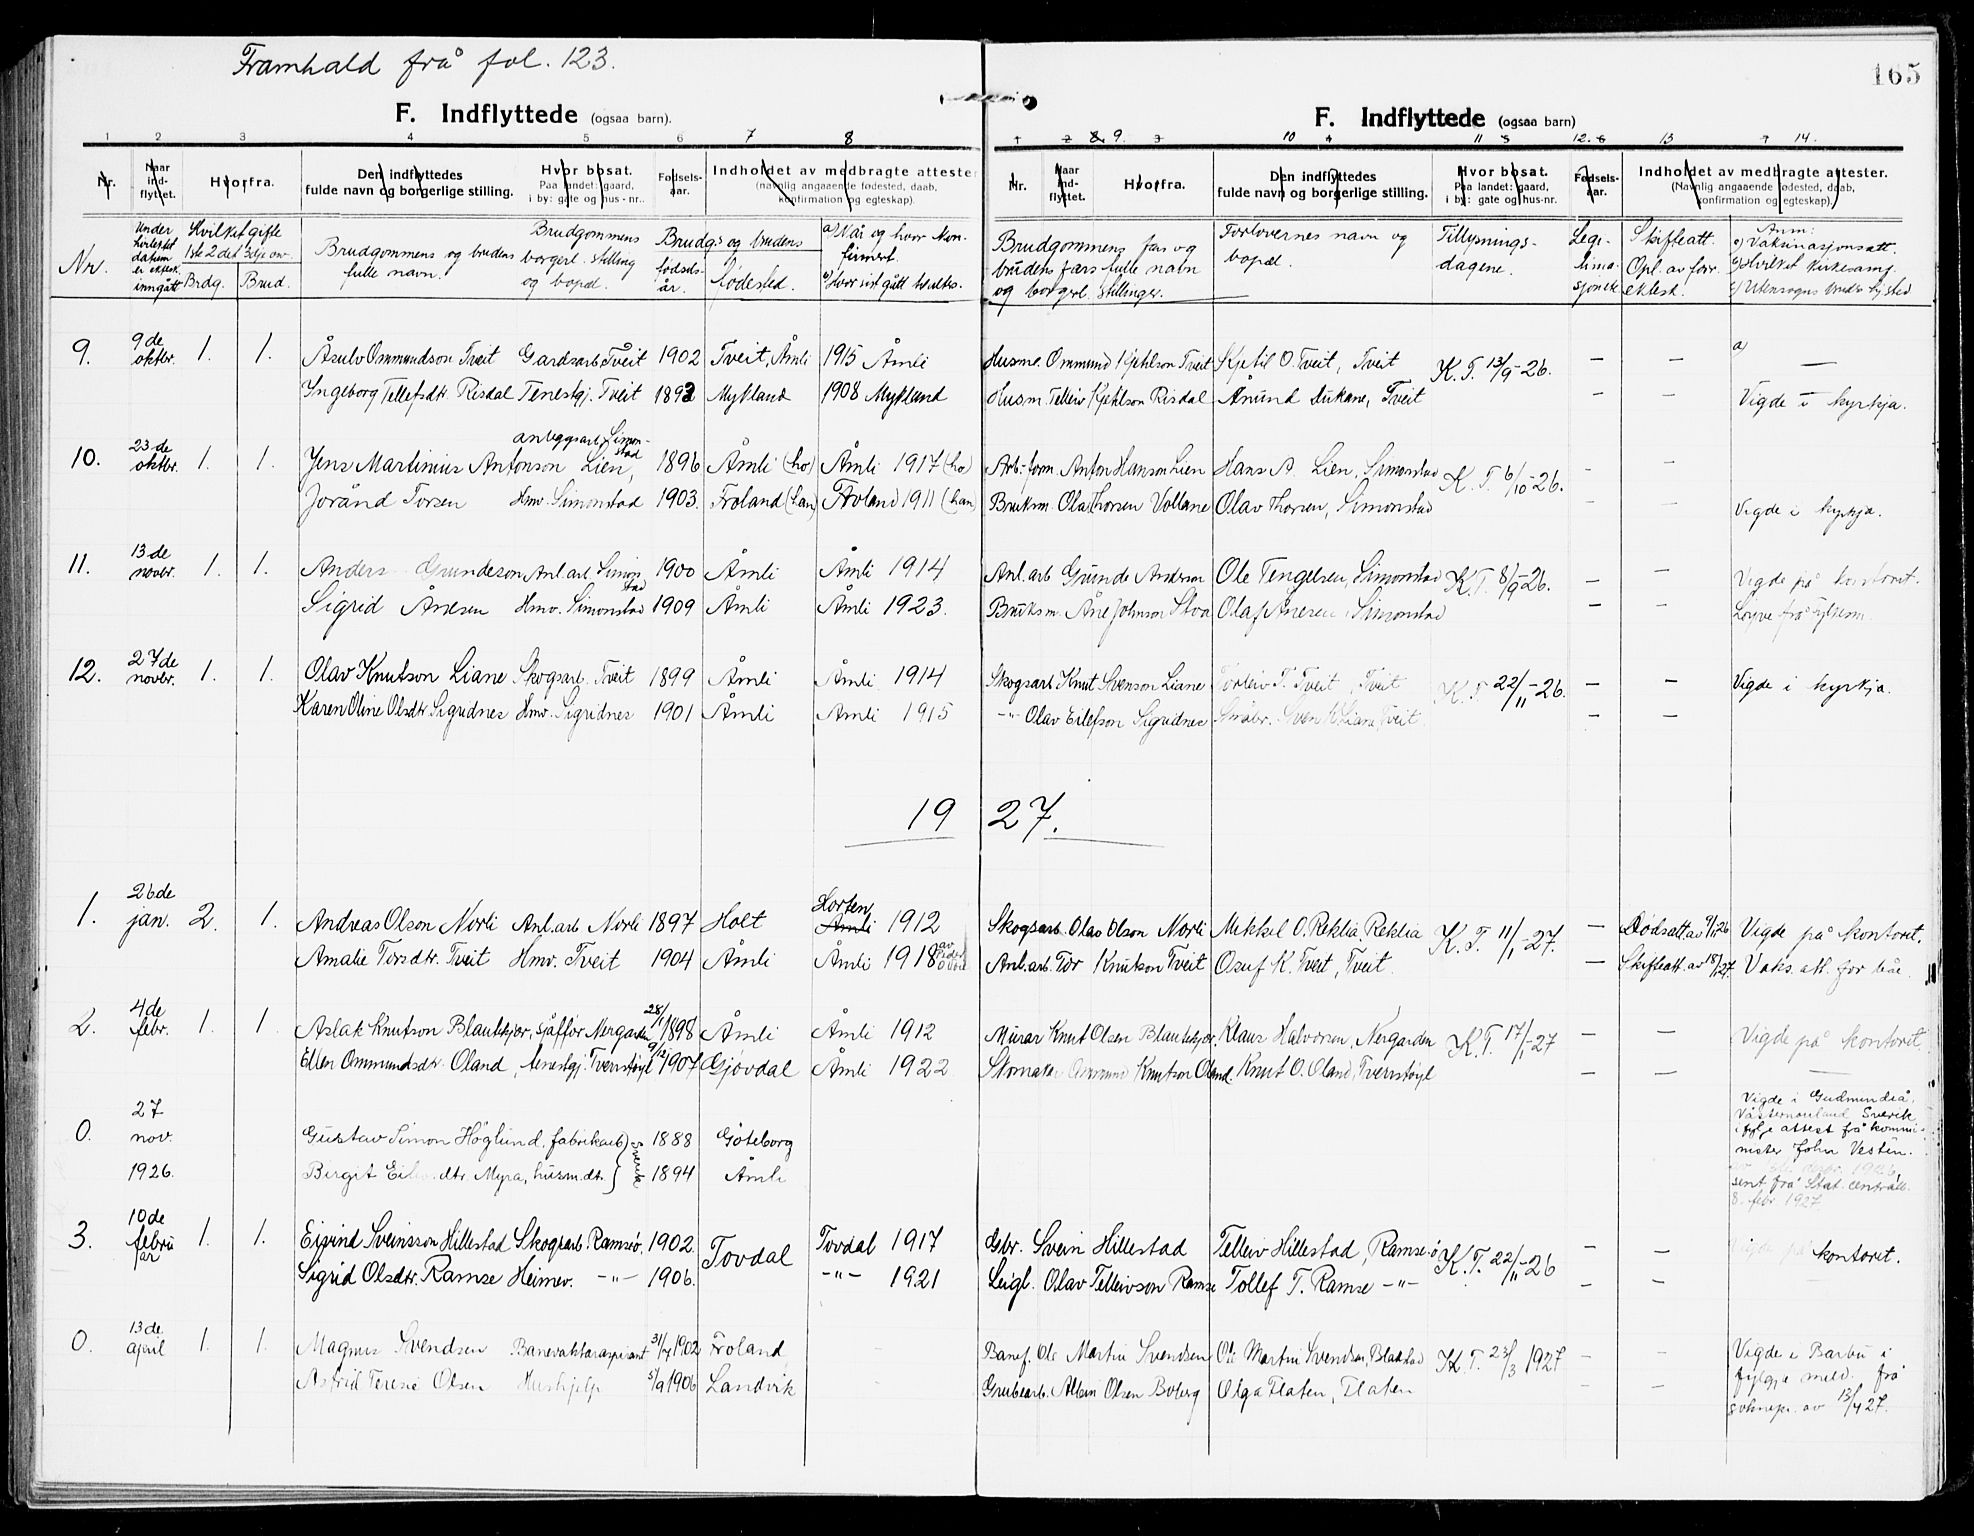 Framhald frå fol. 123.
165
F. Indflyttede (ogsaa barn).
F. Indflyttede (ogsaa barn)
1 2 3 4 5 6 7 8
1 2 8 9. 3 10 4 11 5 12. 6 13 7 14.
Nr. Naar ind-flyttet. Hvorfra. Den indflyttedes fulde navn og borgerlige stilling. Hvor bosat. Paa landet: gaard, i by: gate og hus-nr.. Fødsels-aar. Indholdet av medbragte attester (navnlig angaaende fødested, daab, konfirmation og egteskap).
Nr. Naar ind-flyttet. Hvorfra. Den indflyttedes fulde navn og borgerlige stilling. Hvor bosat. Paa landet: gaard, i by: gate og hus-nr. Fødsels-aar. Indholdet av medbragte attester. (Navnlig angaaende fødested, daab, konfirmation og egteskap).
Nr. Under hvilket datum er ektesk. inngått Hvilket gifte 1ste 2det 3dje osv Brdg. Brud. Brudgommens og brudens fulle navn. Brudgommens borgerl. stilling og bopæl. Brudg.s og brudens fødsels-år. fødested. a) Når og hvor konfirmert.
Brudgommens fars og brudens færs fulle navn og borgerl. stillinger. Forlovernes navn og bopæl. Tillysnings-dagene. Legi-tima-sjoner Skifteatt. Opl. av forr. ektesk. Anm: a) Vaksinasjonsatt. b) Hvilket kirkesamf.
9. 9de oktbr. 1. 1. Åsulv Ommundson Tveit Gardsarb. Tveit 1902 Tveit, Åmli 1915 Åmli Husm. Ommund Kjetilson Tveit Kjetil O. Tveit, Tveit K. T. 13/9-26. — — a) —
Ingeborg Tellefsdtr. Risdal Tenestgj. Tveit 1892 Mykland 1908 Mykland Husm. Telleiv Kjetilson Risdal Ånund Dukane, Tveit — — Vigde i kyrkja.
10. 23de oktbr. 1. 1. Jens Martinius Antonson Lien, anleggsarb. Simonstad 1896 Åmli (ho) Åmli 1917 (ho) Arb.-form. Anton Hanson Lien Hans A Lien, Simonstad K. T. 6/10-26. — —
Jorånd Torsen Hmv. Simonstad 1903. Froland (han) Froland 1911 (han) Bruksm. Olav Thorsen Vollane Olav Thorsen, Simonstad — — Vigde i kyrkja.
11. 13de novbr. 1. 1. Anders Grundeson Anl.arb. Simonstad 1900 Åmli Åmli 1914 Anl.arb Gunde Anderson Ole Tengelsen, Simonstad K. T. 8/9-26. — — Vigde på kontoret.
Sigrid Åndsen Hmv. Simonstad 1909 Åmli Åmli 1923. Bruksm. Åne Johnson Stoa Olaf Ånesen, Simonstad — — Løyve frå fylkesm.
12. 27de novbr. 1. 1. Olav Knutson Liane Skogsarb. Tveit 1899 Åmli Åmli 1914 Skogsarb Knut Svenson Liane Torleiv T. Tveit, Tveit K. T 22/11-26. — — Vigde i kyrkja.
Karen Oline Olsdtr Sigridnes Hmv. Sigridnes 1901 Åmli Åmli 1915 -"- Olav Eilefson Sigridnes Småbr. Sven K. Liane, Tveit. — —
1927.
1. 26de jan. 2. 1. Andreas Olson Norli Anl.arb Norli 1897 Holt Horten Åmli 1912 Skogsarb. Olav Olson Norli Mikkel O. Reklia, Reklia K. T. 11/1-27. — Dødsatt. av 9/1 26 Vigde på kontoret.
Amalie Torsdtr. Tveit Hmv. Tveit 1904 Åmli Åmli 1918 Anl.arb. Tor Knutson Tveit Osuf K. Tveit, Tveit. — Skifteatt. av 18/1 27. Vaks. att. for båe.
2. 4de febr. 1. 1. Aslak Knutson Blautekjær, sjåffør Nergarden 28/1 1898 Åmli Åmli 1912 Murar Knut Olsen Blautekjær. Klaus Halvorsen, Nergarden K. T. 17/1-27 — — Vigde på kontoret.
Ellen Ommundsdtr. Oland, tenestgj. Tverrstøyl 9/12 1907 Gjøvdal Åmli 1922 Skomaker Ommund Knutson Oland. Knut O. Oland, Tverrstøyl — —
0. 27 nov. 1926. Gustav Simon Höglund, fabrikarb. 1888 Göteborg Vigde i Gudmundrå, Västernorrland, Sverik
Birgit Eil dtr. Myra, husm.dtr. } Sverik 1894 Åmli ifylje attest frå kommi-nister John Vestin.
sent frå Stat. centralb. 8. febr. 1927.
3. 10de februar 1. 1. Eivind Sveinsson Hillestad Skogsarb. Ramsø. 1902. Tovdal Tovdal 1917 Gbr. Svein Hillestad Telleiv Hillestad, Ramse-ø K. T. 22/11-26 — — Vigde på kontoret.
Sigrid Olsdtr. Ramse Heimev. -"- 1906. -"- 1921 Leigl. Olav Telleivson Ramse Tollef T. Ramse -"- — —
0. 13de april 1. 1. Magnus Svendsen Banevaktaraspirant 31/7 1902 Froland Banef. Ole Martin Svendsen Ole Martin Svendsen, Blakstad K. T. 23/3 1927 — — Vigde i Barbu i
Astrid Terese Olsen Hushjelp 5/9 1906 Landvik Grubearb. Albin Olsen Boberg Olga Flaten, Flaten — — fylgje meld. frå soknepr. av 13/4 27.